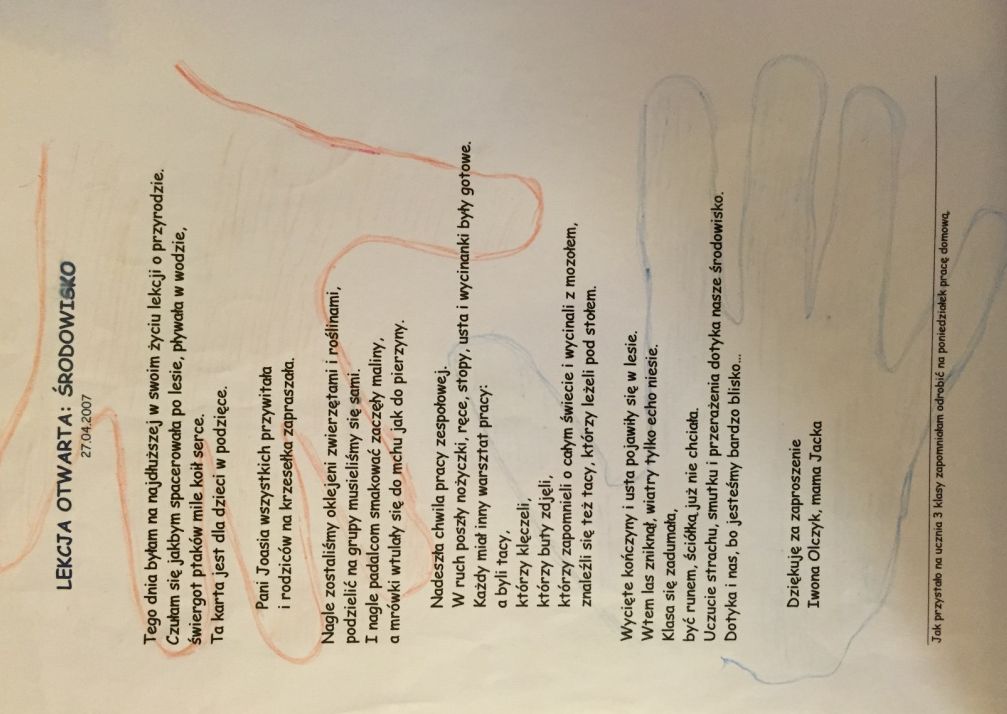 LEKCJA OTWARTA: ŚRODOWISKO
27.04.2007
Tego dnia byłam na najdłuższej w swoim życiu lekcji o przyrodzie.
Czułam się jakbym spacerowała po lesie, pływała w wodzie,
świergot ptaków mile koił serce.
Ta karta jest dla dzieci w podzięce.
Pani Joasia wszystkich przywitała
i rodziców na krzesełka zapraszała.
Nagle zostaliśmy oklejeni zwierzętami i roślinami,
podzielić na grupy musieliśmy się sami.
I nagle padalcom smakować zaczęły maliny,
a mrówki wtulały się do mchu jak do pierzyny.
Nadeszła chwila pracy zespołowej.
W ruch poszły nożyczki, ręce, stopy, usta i wycinanki były gotowe.
Każdy miał inny warsztat pracy:
a byli tacy,
którzy klęczeli,
którzy buty zdjęli,
którzy zapomnieli o całym świecie i wycinali z mozołem,
znaleźli się też tacy, którzy leżeli pod stołem.
Wycięte kończyny i usta pojawiły się w lesie.
Wtem las zniknął, wiatry tylko echo niesie.
Klasa się zadumała,
być runem, ściółką już nie chciała.
Uczucie strachu, smutku i przerażenia dotyka nasze środowisko.
Dotyka i nas, bo jesteśmy bardzo blisko...
Dziękuję za zaproszenie
Iwona Olczyk, mama Jacka
Jak przystało na ucznia 3 klasy zapomniałam odrobić na poniedziałek pracę domową.